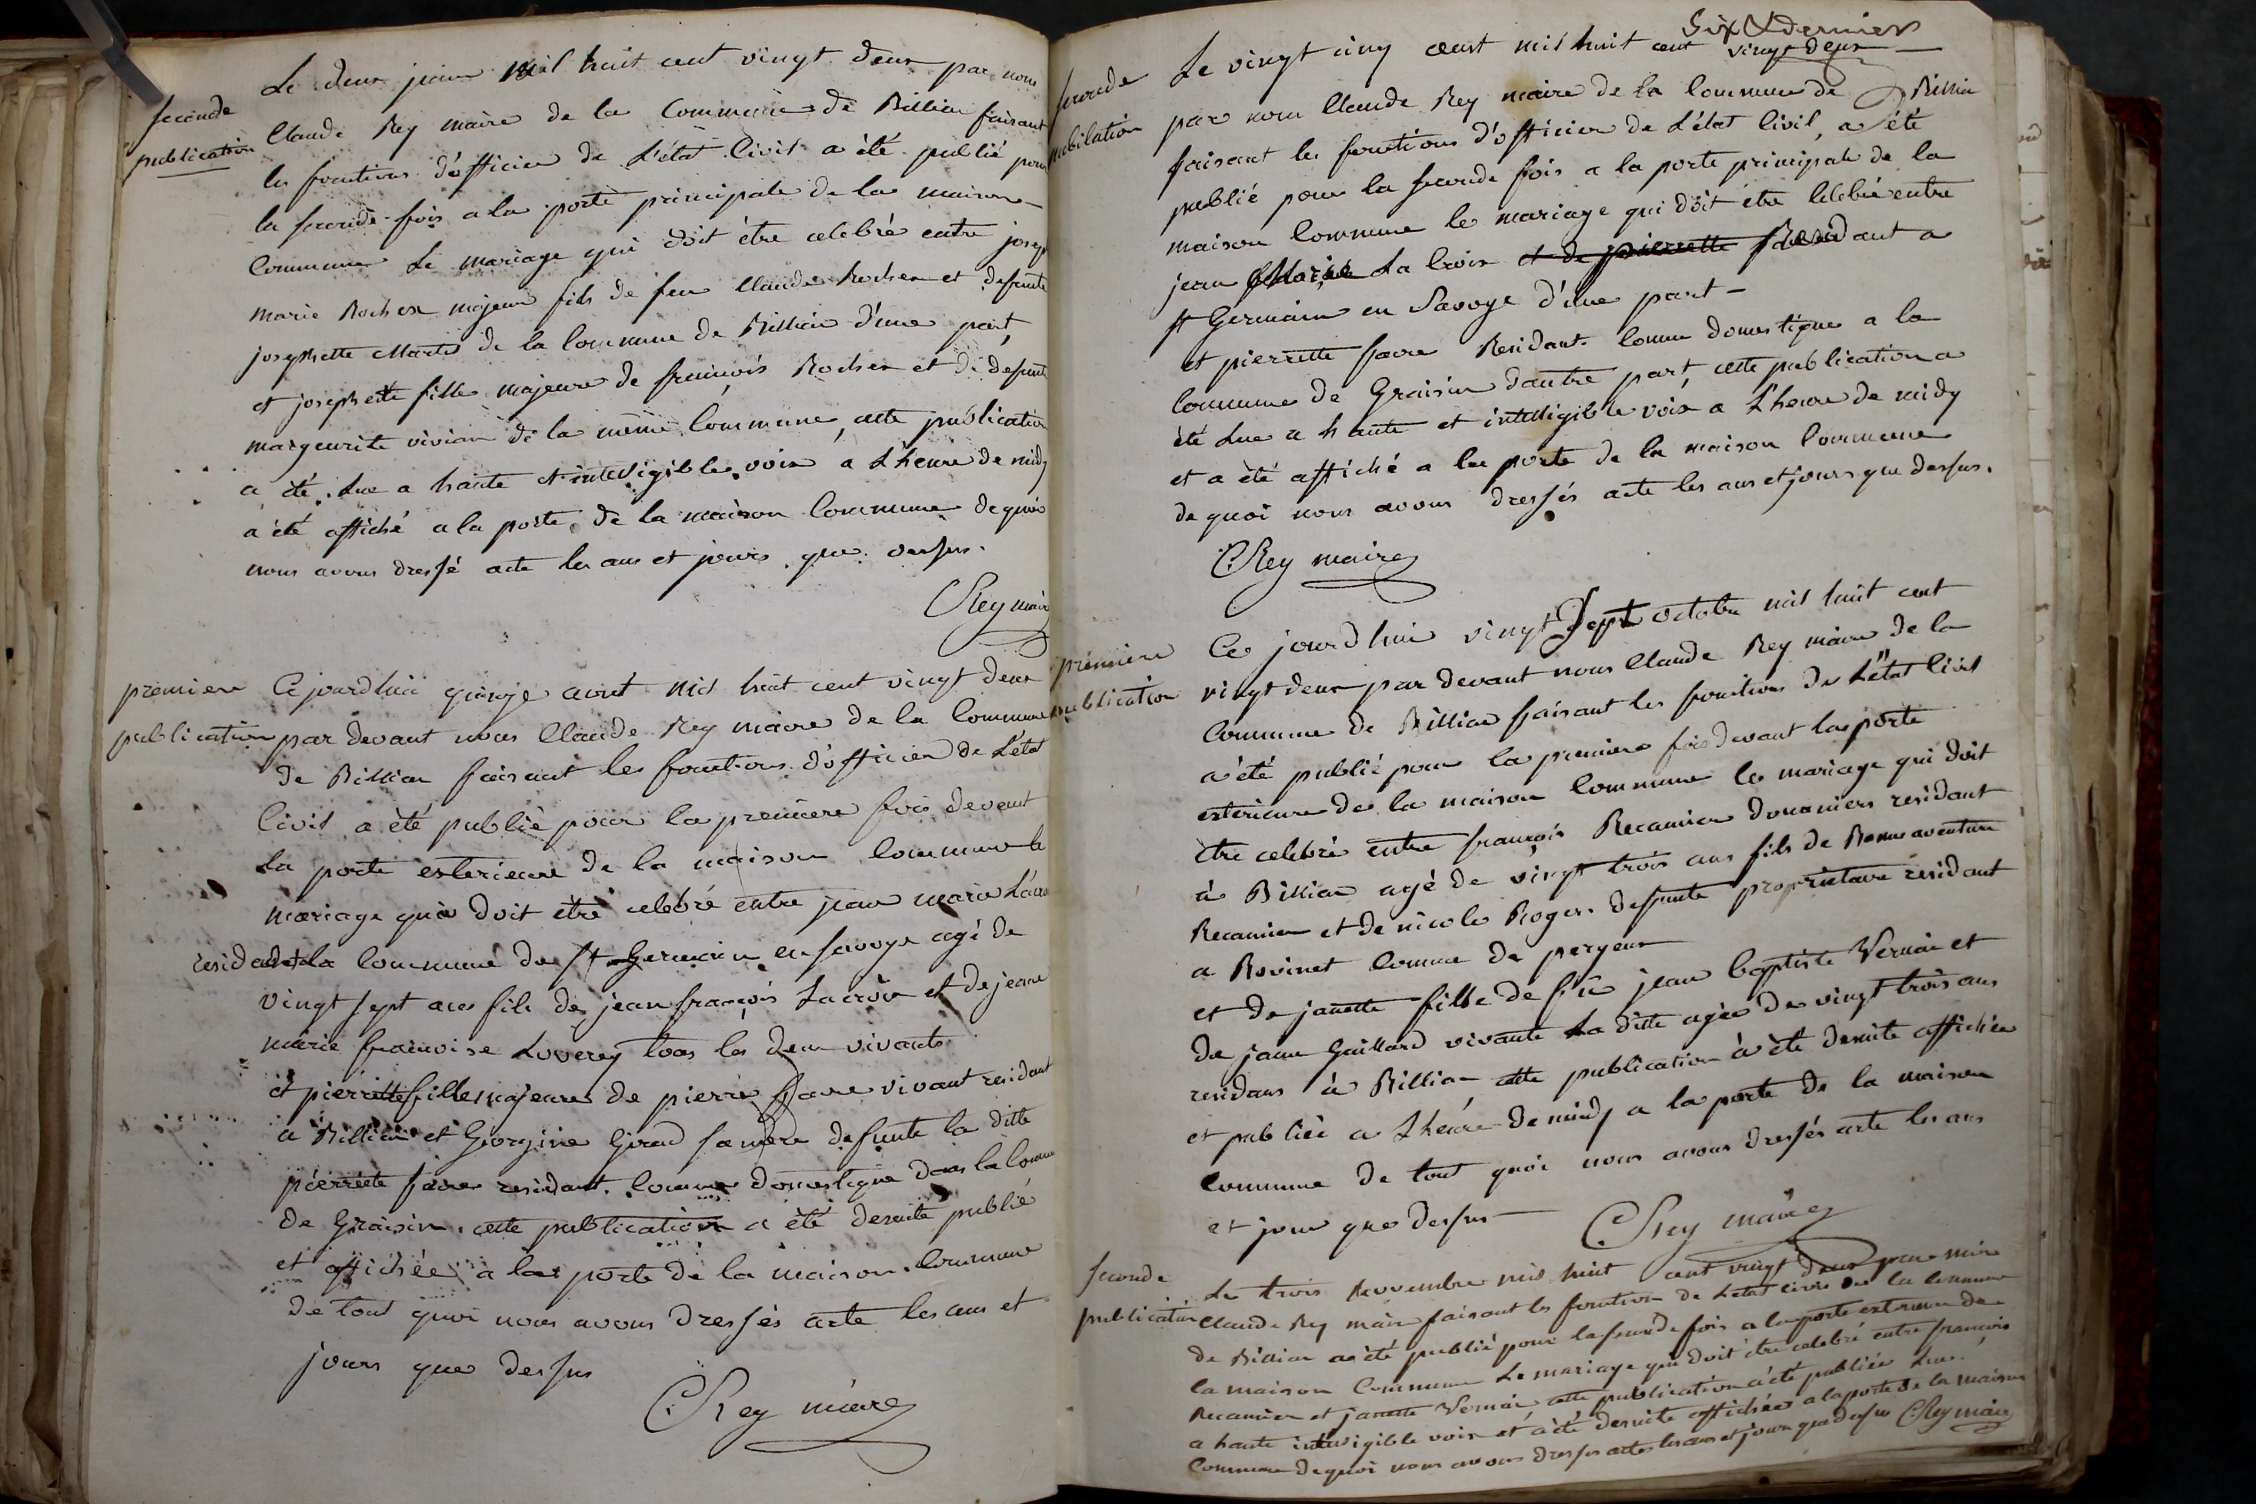 Le deux juin mil huit cent vingt deux par nous
seconde
publication
Claude Rey maire de la Commune de Billian faisant
les fonctions d'officier de L'état Civil a été publié pour
la seconde fois a la porte principale de la maison
Commune Le mariage qui doit être celebré entre joseph
marie Rocher majeur fils de feu Claude Rocher et defunte
josephette Martin de la Commune de Billian d'une part,
et josephette fille majeure de françois Rocher et de defunte
margeurite vivian de la même Commune, cette publication
a été Lue a haute et intelligible voix a L'heure de midy
a été affiché a la porte de la maison Commune de quoi
nous avons dressé acte les ans et jours que dessus.
C Rey maire
premiere
publication
Ce jourd'hui quinze aout mil huit cent vingt deux
par devant nous Claude Rey maire de la Commune
de Billian faisant les fonctions d'officier de L'état
Civil a été publié pour la premiere fois devant
La porte exterieure de la maison Commune le
mariage qui doit être celebré entre jean marie Lacroix
residant a la Commune de St Germain en savoye agé de
vingt sept ans fils de jean françois Lacroix et de jeane
marie francoise Loverey tous les deux vivants
et pierrette fille majeure de pierre favre vivant residant
a Billian et Giorgine Giroud sa mere defunte la ditte
pierrette favre residant. Comme domestique dans la Commune
de Graisin. cette publication a été desuite publié
et affichée a la porte de la maison Commune
de tout quoi nous avons dressés acte les ans et
jours que dessus
C. Rey maire
Six & dernier
seconde
publication
Le vingt cinq aout mil huit cent vingt deux
par nous Claude Rey maire de la Commune de Billian
faisant les fonctions d'officier de L'état Civil, a été
publié pour la seconde fois a la porte principale de la
maison Commune le mariage qui doit être Celebré entre
jean Marie La Croix et de pierrette Residant a
St Germain en Savoye d'une part
et pierrette favre Residant. Comme domestique a la
Commune de Graisin dautre part, cette publication a
été Lue a haute et intelligible voix a L'heure de midy
et a été affiché a la porte de la maison Commune
de quoi nous avons dressés acte les ans et jours que dessus.
C. Rey maire
premiere
publication
Ce jourd'hui vingt Sept octobre mil huit cent
vingt deux par devant nous Claude Rey maire de la
Commune de Billian faisant les fonctions de L'état Civil
a été publié pour la premiere fois devant la porte
exterieure de la maison Commune le mariage qui doit
être celebré entre françois Recamier douaniers residant
à Billian agé de vingt trois ans fils de Bonnaventure
Recamier et de nicole Roger defunte proprietaire residant
a Rovinet Comme de
et de janette fille de feu jean baptiste Vernai et
de jane Gaillard vivante La ditte agée de vingt trois ans
residans à Billian cette publication a été desuite affichée
et publiée a L'heure de midy a la porte de la maison
Commune de tout quoi nous avons dressés acte les ans
et jour que dessus
C Rey maire
seconde
publication
Le trois Novembre mil huit cent vingt deux par nous
Claude Rey maire faisant les fonction de L'etat civil de la commune
de Billian a été publié pour la seconde fois a la porte exterieure de
la maison Commune Le mariage qui doit être celebré entre françois
Recamier et janette Vernai, cette publication a été publiée Lue
a haute intelligible voix et a été desuite affichée a la porte de la maison
Commune de quoi nous avons dresses acte les ans et jour que dessus C. Rey maire